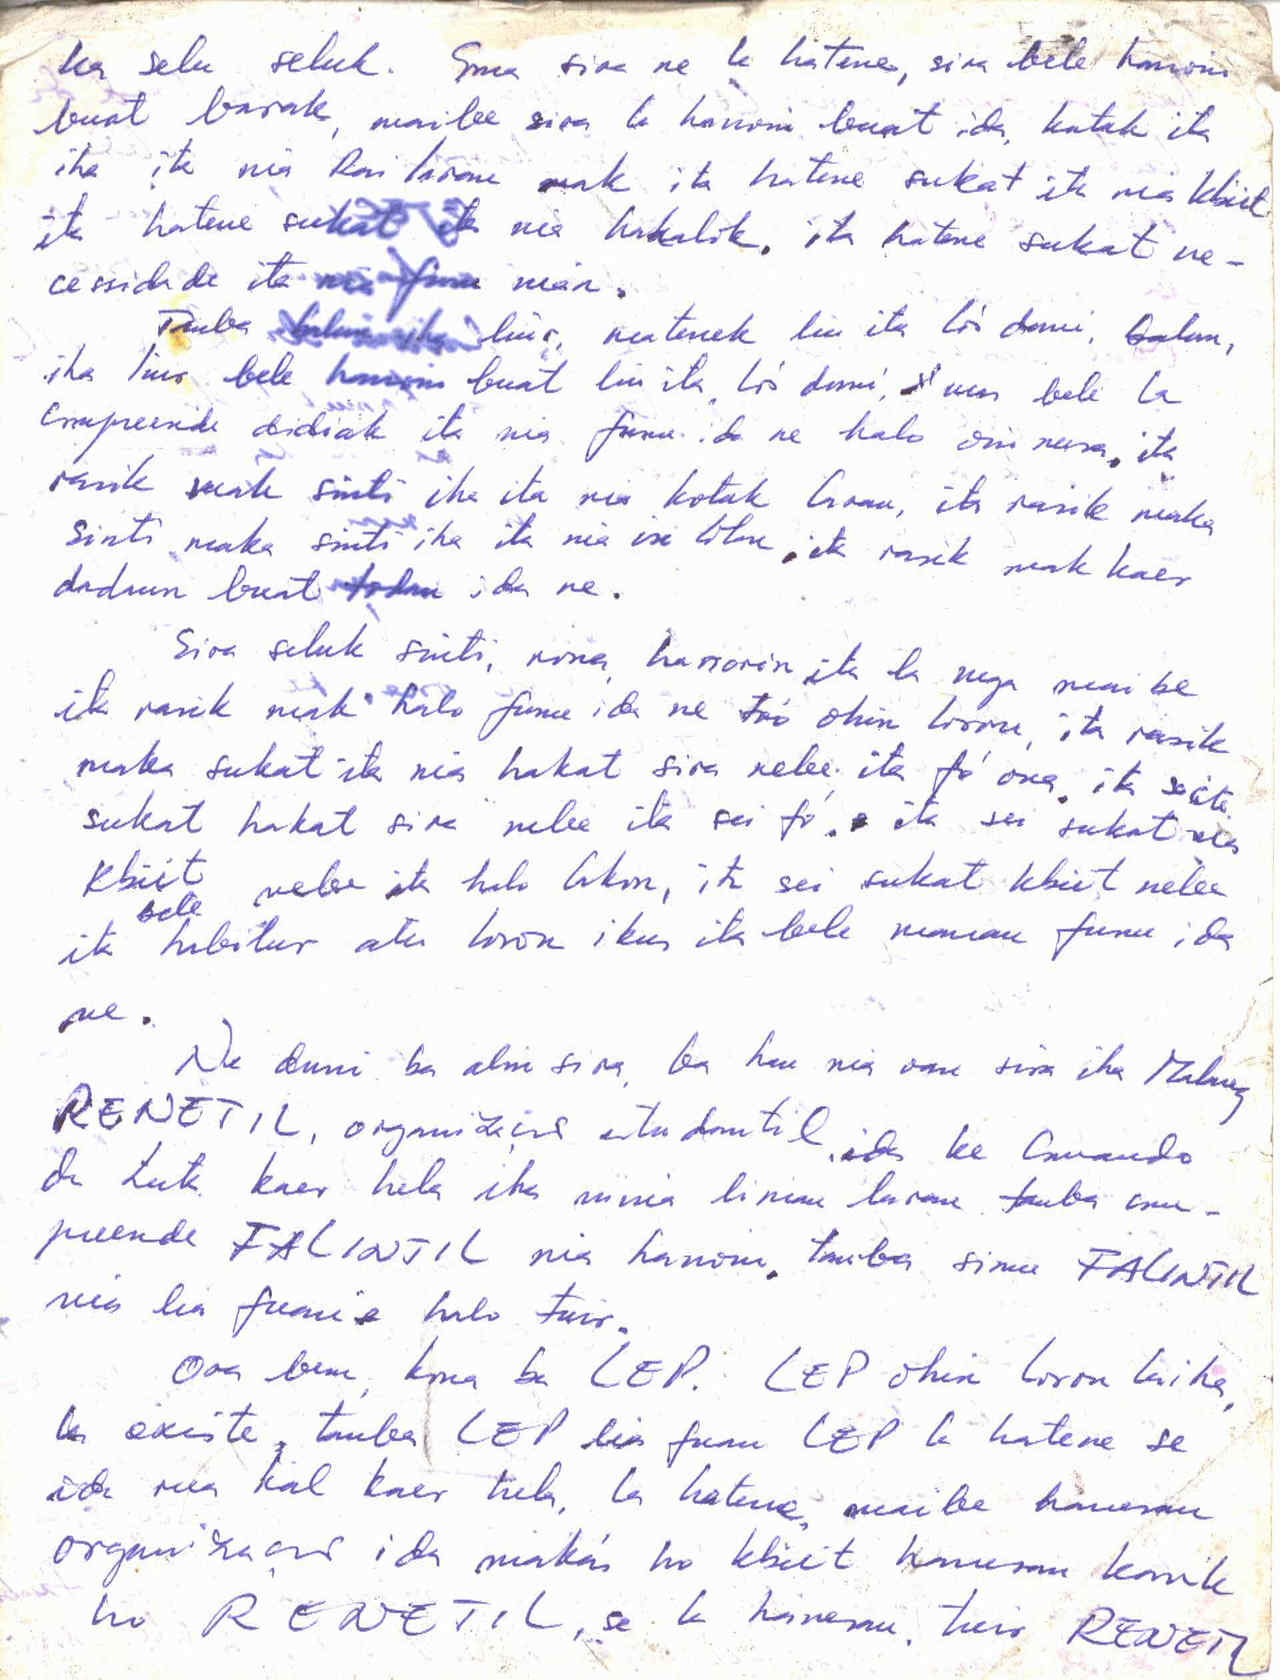 ka selu seluk. Ema sira ne la hatene, sira bele hanoin
buat barak, maibe sira la hanoin buat ida, katak ita
iha ita nia Rai laran mak ita hatene sukat ita nia kbiit
ita hatene sukat ita nia hakalik, ita hatene sukat ne-
cessidade ita nia funu nian.
Tauba balun iha liur, matenek liu ita lós demi, balun,
iha liur bele hanoin buat liu ita, lós dumi, mas bele la
compreende didiak ita nia funu ida ne halo oin nusa, ita
rasik mak sinti iha ita nia kotuk laran, ita rasik maka
sinti maka sinti iha ita nia isi lolon, ita rasik mak kaer
dadaun buat todan ida ne.
Sira seluk sinti, rona, hanoin ita la nega maibe
ita rasik mak halo funu ida ne tó ohin loron, ita rasik
maka sukat ita nia hakat sira nebe ita fó ona, ita sei
sukat hakat sira nebe ita sei fó, e ita sei sukat nia
kbiit nebe ita halo lakon, ita sei sukat kbiit nebe
ita bele habitur atu loron ikus ita bele manan funu ida
ne.
Ne duni ba alin sira, ba hau nia oan sira iha Malang
RENETIL, organização estudantil ida ke Comando
da Luta kaer hela iha ninia liman laran tauba com-
preende FALINTIL nia hanoin, tauba simu FALINTIL
nia lia fuan e halo tuir.
Ora bem, kona ba LEP. LEP ohin loron laiha,
la existe, tauba LEP lia fuan LEP la hatene se
ida rua kal kaer hela, la hatene, maibe hanesan
organização ida makás ho kbiit hanesan karik
ho RENETIL, se la hanesan, tuir RENETIL